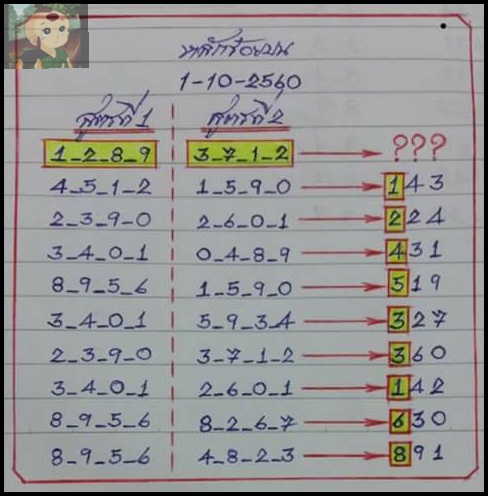 หลักร้อยบน
1-10-2560
สูตรที่ 1 สูตรที่ 2
1-2-8-9 3-7-1-2 ???
4-5-1-2 1-5-9-0 143
2-3-9-0 2-6-0-1 224
3-4-0-1 0-4-8-9 431
8-9-5-6 1-5-9-0 519
3-4-0-1 5-9-3-4 327
2-3-9-0 3-7-1-2 360
3-4-0-1 2-6-0-1 142
8-9-5-6 8-2-6-7 630
8-9-5-6 4-8-2-3 891